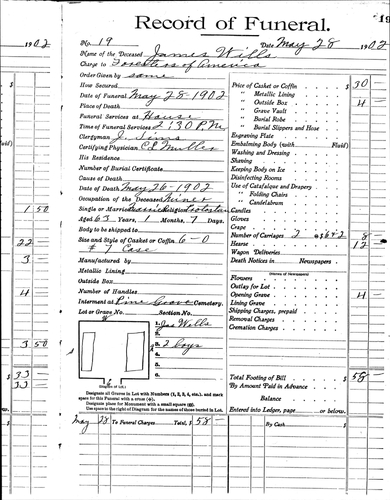 19
1902
Record of Funeral.
No. 19
Date May 28 1902
Name of the Deceased James Wills
Charge to Foresters of America
Order Given by same
How Secured
Date of Funeral May 28-1902
Place of Death
Funeral Services at House
Time of Funeral Services 2:30 P.M.
Clergyman J. Sims
Certifying Physician C.L. Muller
His Residence
Number of Burial Certificate
Cause of Death
Date of Death May 26-1902
Occupation of the Deceased Miner
Single or Married Married Religion Protestant
Aged 63 Years, 1 Months, 7 Days.
Body to be shipped to
Size and Style of Casket or Coffin 6-0
# 7 Case
Manufactured by
Metallic Lining
Outside Box
Number of Handles
Interment at Pine Grove Cemetery.
Lot or Grave No. Section No.
1. Jas Wills
2.
3. 2 boys
4.
5.
6.
Diagram of Lot.
Designate all Graves in Lot with Numbers (1, 2, 3, 4, etc.), and mark
space for this Funeral with a cross (+).
Designate place for Monument with a small square.
Use space to the right of Diagram for the names of those buried in Lot.
May 28 To Funeral Charges Total, $ 58 —
Price of Casket or Coffin $ 30 —
" Metallic Lining
" Outside Box 4 —
" Grave Vault
" Burial Robe
" Burial Slippers and Hose
Engraving Plate
Embalming Body (with Fluid)
Washing and Dressing
Shaving
Keeping Body on Ice
Disinfecting Rooms
Use of Catafalque and Drapery
" Folding Chairs
" Candelabrum
Candles
Gloves
Crape
Number of Carriages 2 8 —
Hearse 12
Wagon Deliveries
Death Notices in Newspapers
(Names of Newspapers)
Flowers
Outlay for Lot
Opening Grave 4 —
Lining Grave
Shipping Charges, prepaid
Removal Charges
Cremation Charges
Total Footing of Bill $ 58 —
By Amount Paid in Advance
Balance
Entered into Ledger, page or below.
By Cash
Fluid)
1 50
22
3
4
3 50
33
33